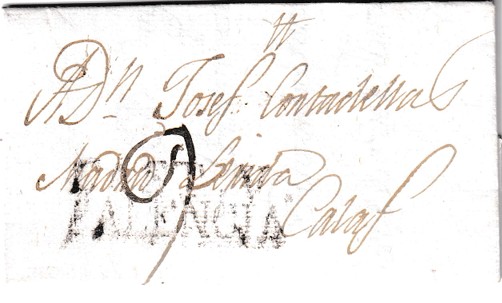 A Dn Josef Contadellas
Madrid a Lerida
PALENCIA
Calaf